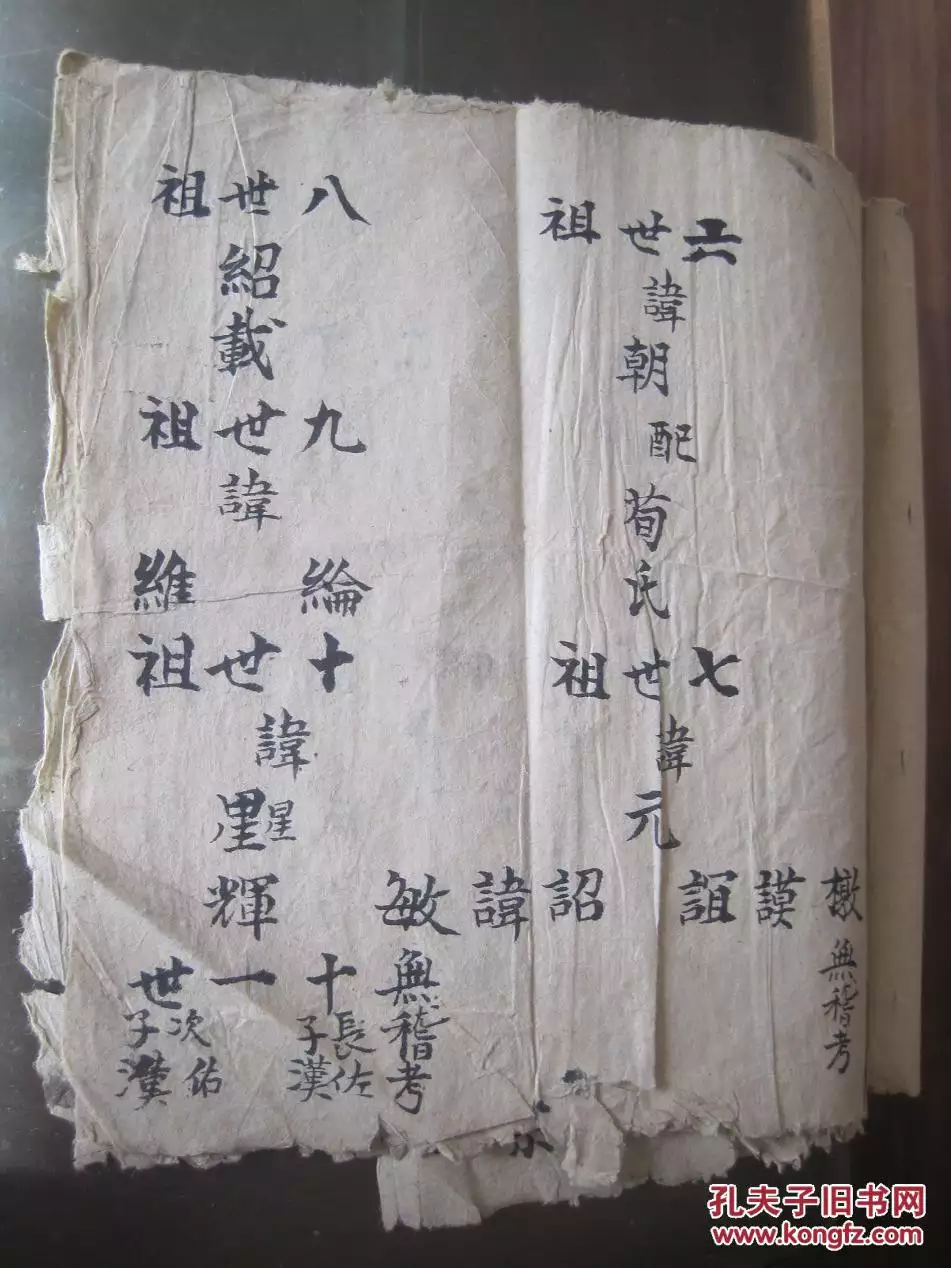 六世祖
諱
朝
配
荀
氏
七世祖
諱
元
檄 謨 誼 詔 諱 敏
無稽考
無稽考
八世祖
紹
載
九世祖
諱
綸 維
十世祖
諱
星
輝
十一世
長子佐漢
次子佑漢
孔夫子旧书网
www.kongfz.com